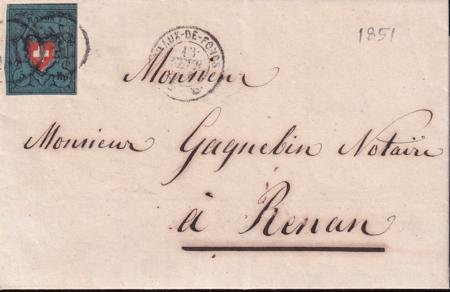 1851
AUX-DE-FONDS
13
5 Rp.
Monsieur
Monsieur Gagnebin Notaire
à Renan